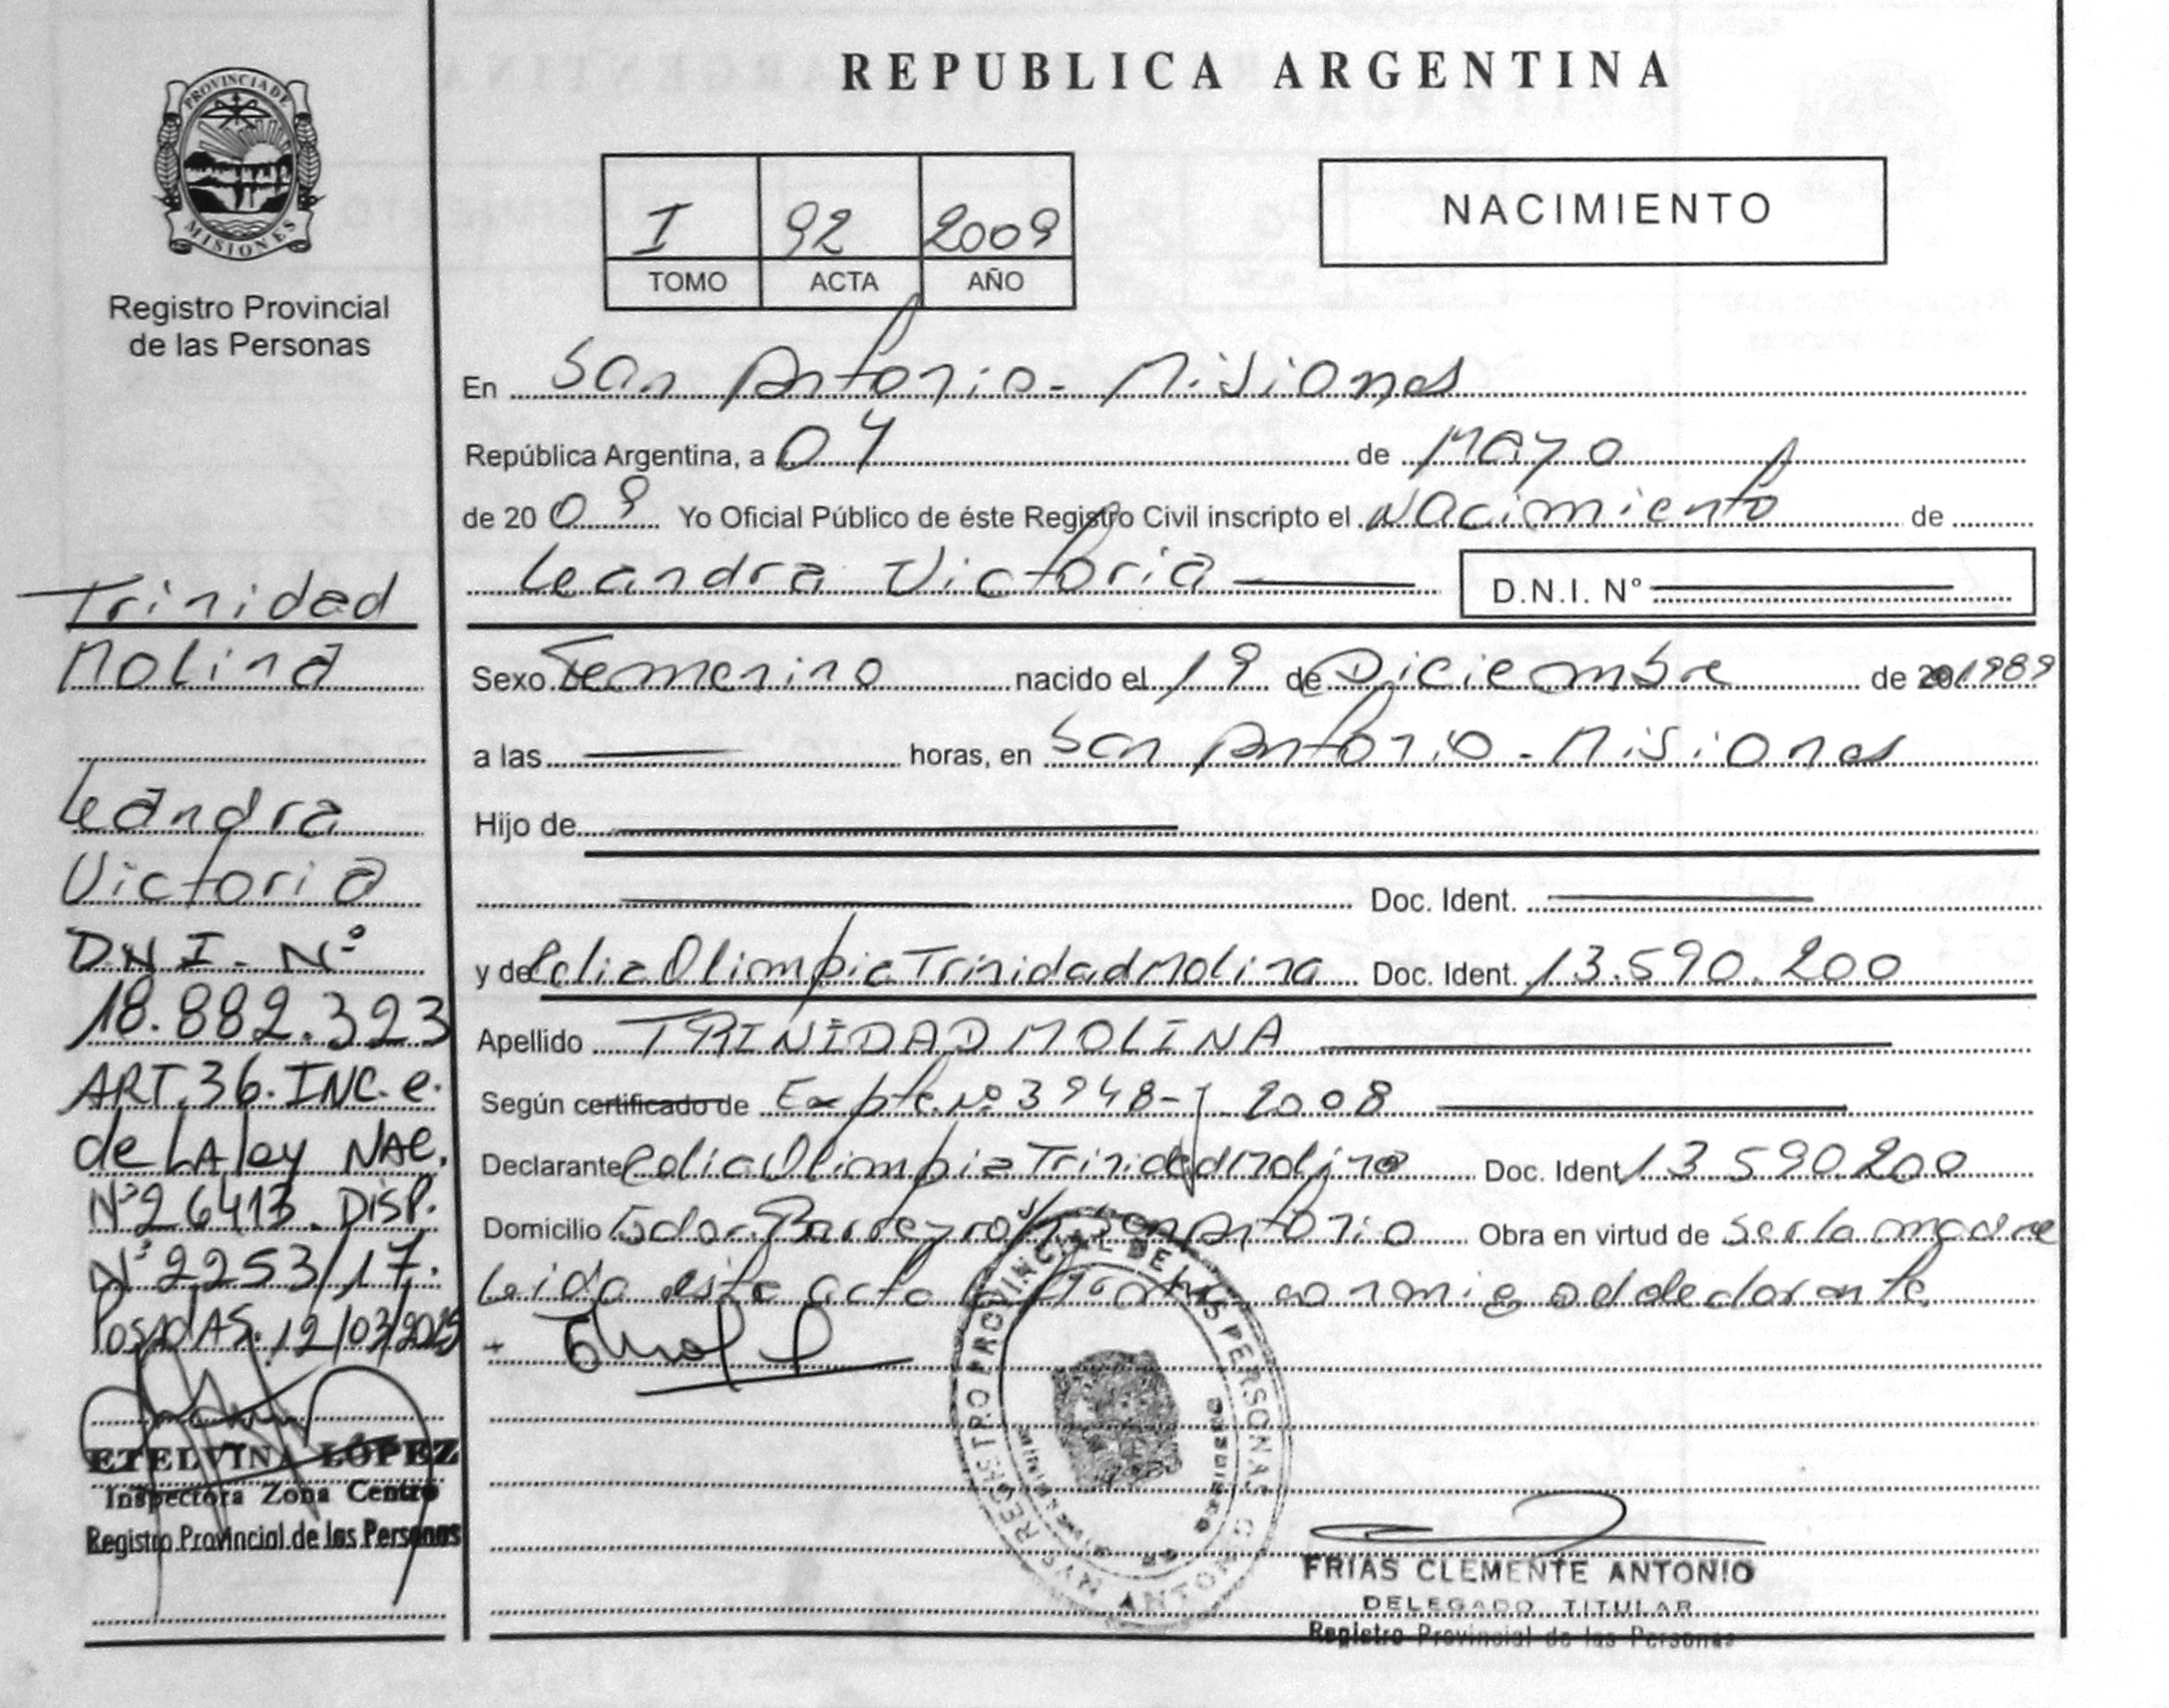 REPUBLICA ARGENTINA
PROVINCIA DE
MISIONES
Registro Provincial
de las Personas
I 92 2009
TOMO ACTA AÑO
NACIMIENTO
En San Antonio - Misiones
República Argentina, a 04 de Mayo
de 20 09 Yo Oficial Público de éste Registro Civil inscripto el Nacimiento de
Leandra Victoria D.N.I. Nº
Sexo Femenino nacido el 19 de Diciembre de 20 1989
a las horas, en San Antonio - Misiones
Hijo de
Doc. Ident.
y de Celia Olimpia Trinidad Molina Doc. Ident. 13.590.200
Apellido TRINIDAD MOLINA
Según certificado de Expte. Nº 3948- 2008
Declarante Celia Olimpia Trinidad Molina Doc. Ident 13 590 200
Domicilio San Antonio Obra en virtud de ser la madre
Leida este acta la firma conmigo el declarante
REGISTRO PROVINCIAL DE LAS PERSONAS
SAN ANTONIO
FRIAS CLEMENTE ANTONIO
DELEGADO TITULAR
Registro Provincial de las Personas
Trinidad
Molina
Leandra
Victoria
D.N.I. Nº
18.882.323
ART. 36. INC. e.
de LA ley NAC.
Nº 26413. DISP.
Nº 2253/17.
POSADAS. 12/03/2025
ETELVINA LÓPEZ
Inspectora Zona Centro
Registro Provincial de las Personas